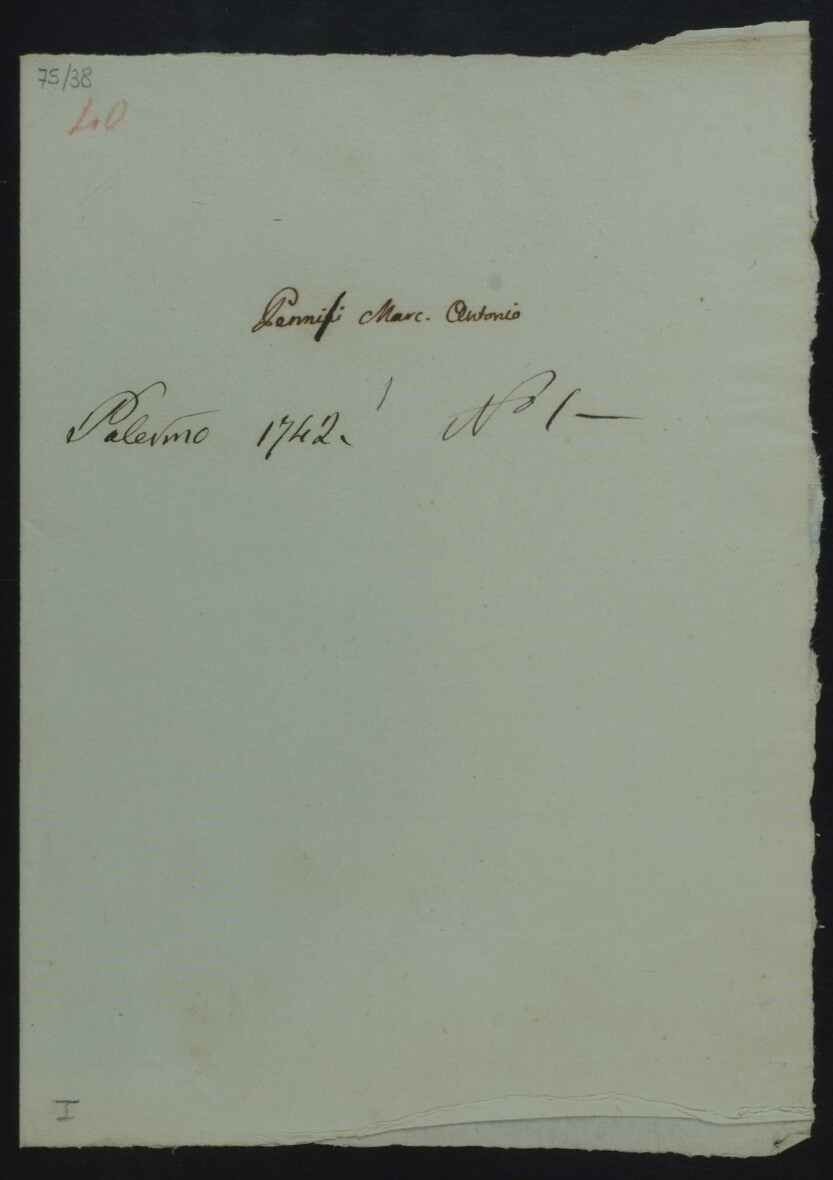 75/38
40
Pennisi Marc. Antonio
Palermo 1742. N.o 1 —
I